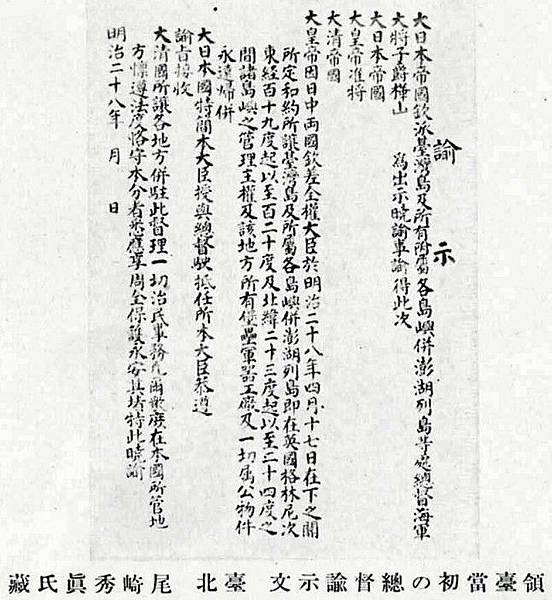 諭示
大日本帝國欽派臺灣島及所有附屬各島嶼併澎湖列島等處總督海軍
大將子爵樺山　為出示曉諭事諭得此次
大日本帝國
大皇帝准將
大清帝國
大皇帝因日中両國欽差全權大臣於明治二十八年四月十七日在下之關
所定和約所讓臺灣島及所屬各島嶼併澎湖列島即在英國格林尼次
東經百十九度起以至百二十度及北緯二十三度起以至二十四度之
間諸島嶼之管理主權及該地方所有堡壘軍器工廠及一切属公物件
永遠歸併
大日本國特簡本大臣授與總督駛抵任所本大臣恭遵
諭旨接收
大清國所讓各地方併駐此督理一切治民事務凡爾衆庶在本國所管地
方懍遵法度恪守本分者悉應享周全保護永安其堵特此曉諭
明治二十八年　月　日
領臺當初の總督諭示文　臺北　尾崎秀眞氏藏